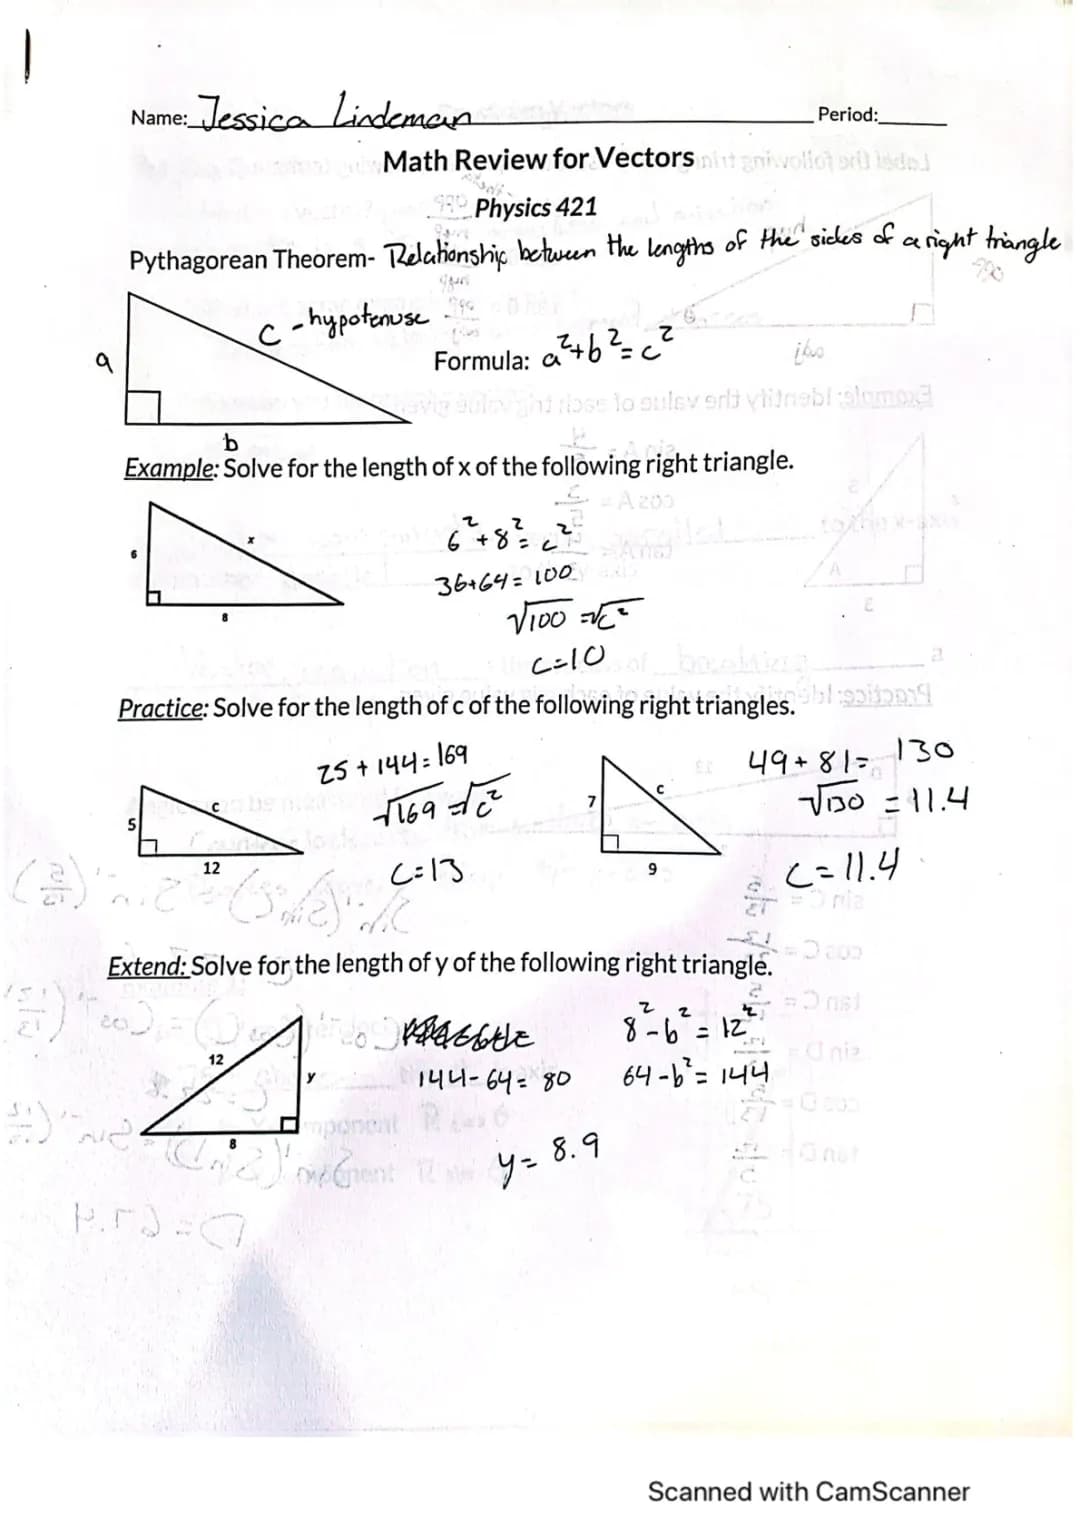 Name: Jessica Lindeman Period:
Math Review for Vectors
Physics 421
Pythagorean Theorem- Relationship between the lengths of the sides of a right triangle
c - hypotenuse
a
Formula: a²+b²=c²
b
Example: Solve for the length of x of the following right triangle.
6
x
8
6²+8²=c²
36+64=100
√100 =√c²
c=10
Practice: Solve for the length of c of the following right triangles.
5
c
12
25+144=169
√169=√c²
c=13
7
c
9
49+81=130
√130 =11.4
c=11.4
Extend: Solve for the length of y of the following right triangle.
12
y
8
144-64=80
8²-b²=12²
64-b²=144
y=8.9
Scanned with CamScanner